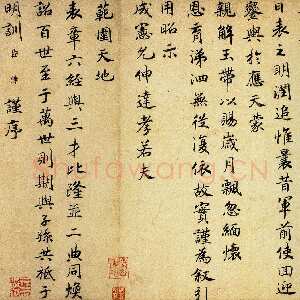 日表之明潤追惟曩昔軍前使回迎
鑾輿於應天蒙
親解玉帶以賜歲月飄忽緬懷
恩育涕泗無從復依故實謹為叙引
用昭示
成憲允伸達孝若夫
範圍天地
表章六經與三才比隆並二典同煥
詔百世至于萬世則期與子孫共祗于
明訓臣 謹序